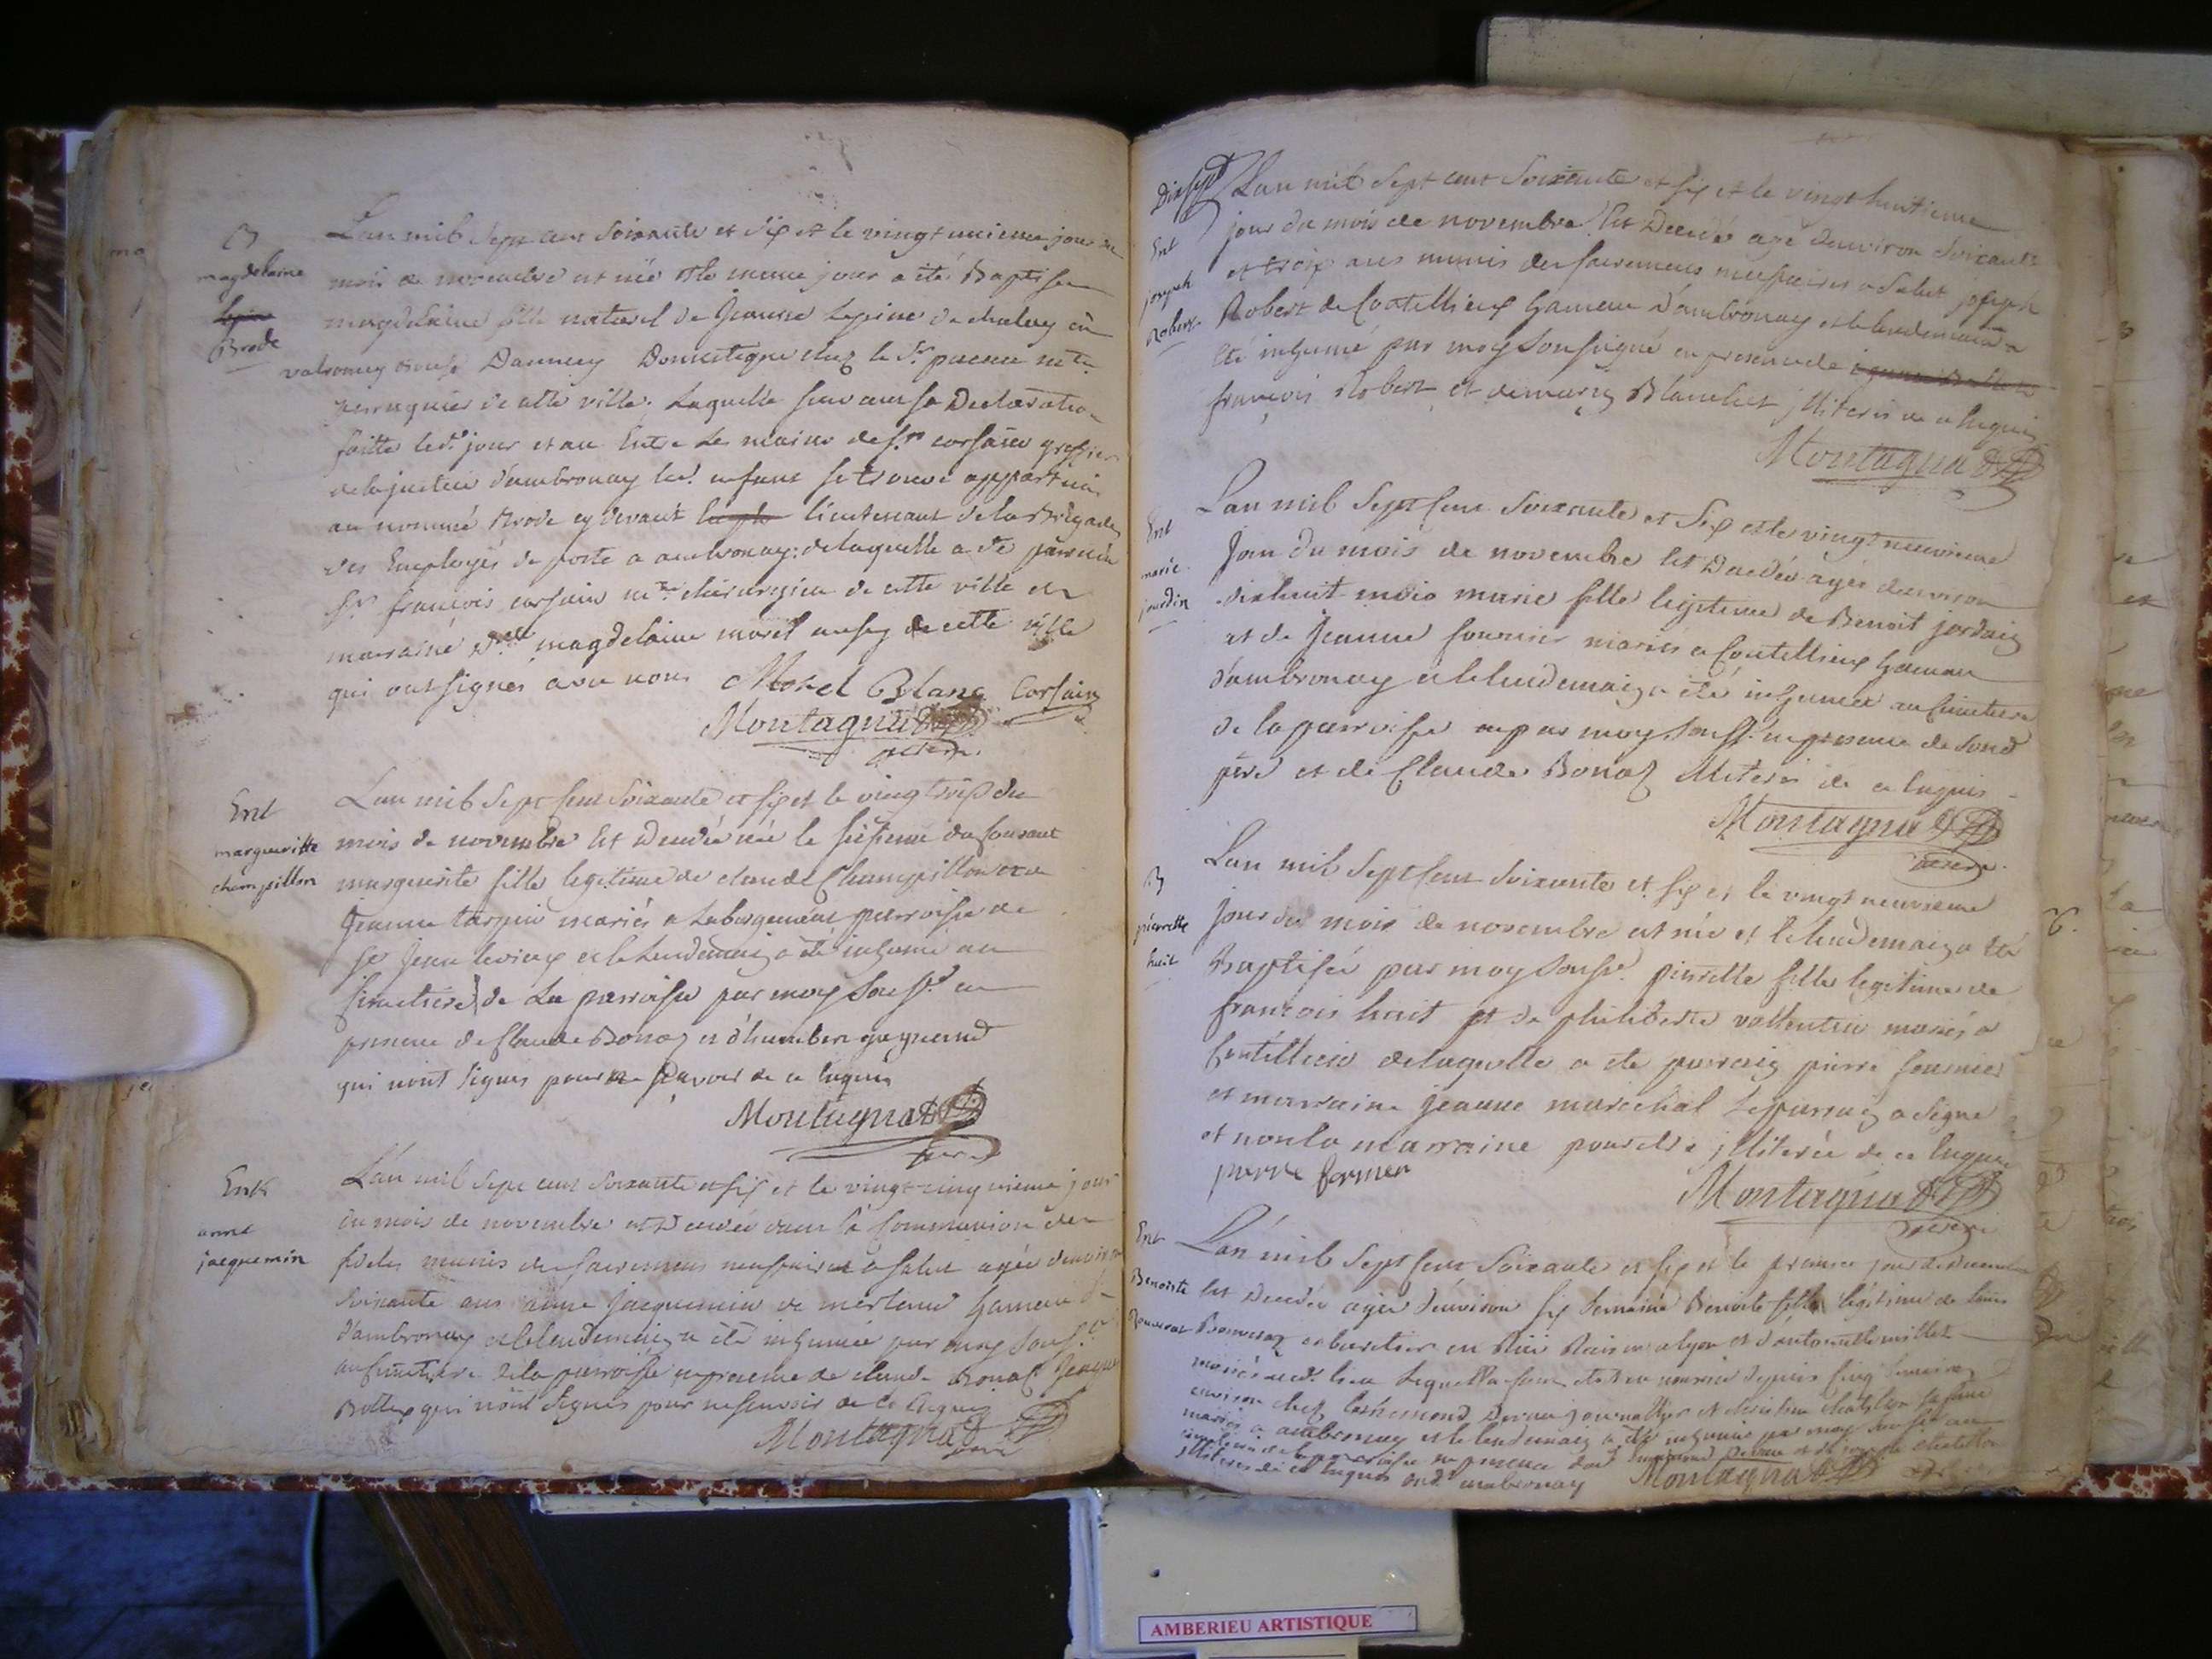 B
magdelaine
lepine
Brode
Lan mil sept cent soixante et six et le vingt unieme jour du
mois de novembre est née et le meme jour a été Baptisee
magdelaine fille naturel de Jeanne Lepine de chaley en
valromey Domestique chez le Sr. me
perruquier de cette ville. Laquelle suivant sa Declaration
faitte led. jour et an Entre les mains de Sr corsain greffier
de la justice d'ambronay led. enfant se trouve appartenir
au nommé Brode cy devant lieutenant de la Brigade
des Employés de poste a ambronay: de laquelle a été parrain
Sr. françois corsain me chirurgien de cette ville et
marraine Dlle magdelaine morel aussy de cette ville
qui ont signés avec nous Morel Blanc Corsain
Montagnat
vicaire
Ent
margueritte
champillon
Lan mil sept cent soixante et six et le vingt trois du
mois de novembre Est Decedée née le seisieme du courant
marguerite fille legitime de claude Champillon et de
Jeanne tarpin mariés a parroisse de
St Jean levieux et le lendemain a été inhumé au
simetiere de La parroisse par moy soussé. en
presence de Claude Bonaz et d'humbert guyguend
qui n'ont signés pour ne sçavoir de ce enquis
Montagnat
vicaire
Ent
anne
jacquemin
L'an mil sept cent soixante et six et le vingt cinquieme jour
du mois de novembre est Decedée dans la Communion des
fideles munis des sacremens nessaires a salut agée denviron
soixante ans anne Jacquemin de merland hameau
d'ambronay et le lendemain a été inhumée par moy souss.é
au simetiere de la parroisse en presence de claude Bonaz Jacques
Bottex qui n'ont signés pour ne sçavoir de ce Enquis
Montagnat
vicaire
Dixsept
Ent
joseph
Robert
Lan mil sept cent soixante et six et le vingt huitieme
jour du mois de novembre Est Decedé agé denviron soixante
et trois ans munis des sacremens nessaires a salut joseph
Robert de Coutellieux hameau d'ambronay et le lendemain a
été inhumé par moy soussigné en presence de
françois Robert et Blanchet illiterés de ce enquis
Montagnat
Ent
marie
jourdin
Lan mil sept cent soixante et six et le vingt neuvieme
Jour du mois de novembre Est Decedée agée denviron
dixhuit mois marie fille legitime de Benoit jordain
et de Jeanne fournier mariés a Coutellieux hameau
d'ambronay et le lendemain a été inhumée au simetiere
de la parroisse par moy souss.é en presence de sond
père et de Claude Bonaz illiterés de ce enquis
Montagnat
vicaire.
B
pierrette
huit
Lan mil sept cent soixante et six et le vingt neuvieme
Jour du mois de novembre est née et le lendemain a été
Baptisée par moy soussé. pierrette fille legitime de
françois huit et de philiberte vallentin mariés a
Coutellieux de laquelle a été parrain pierre fournier
et marraine jeanne marechal Le parrain a signé
et non la marraine pour etre illiterée de ce enquise
pierre fornier
Montagnat
vicaire
Ent
Benoiste
L'an mil sept cent soixante et six et le premier jour de Decembre
Est Decedée agée d'environ six semaine Benoite fille légitime de
cabaretier en a lyon et d'antoinette millet
mariés aud. lieu Laquelle en nourrice depuis cinq semaines
environ chez journallier et chatillon sa fame
mariés a ambronay et le lendemain a été inhumée par moy soussé au
simetiere de la parroisse en presence dud. et de chatillon
illiterés de ce enquis aud. ambronay Montagnat
AMBERIEU ARTISTIQUE